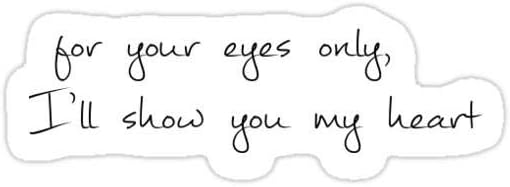 for your eyes only,
I'll show you my heart